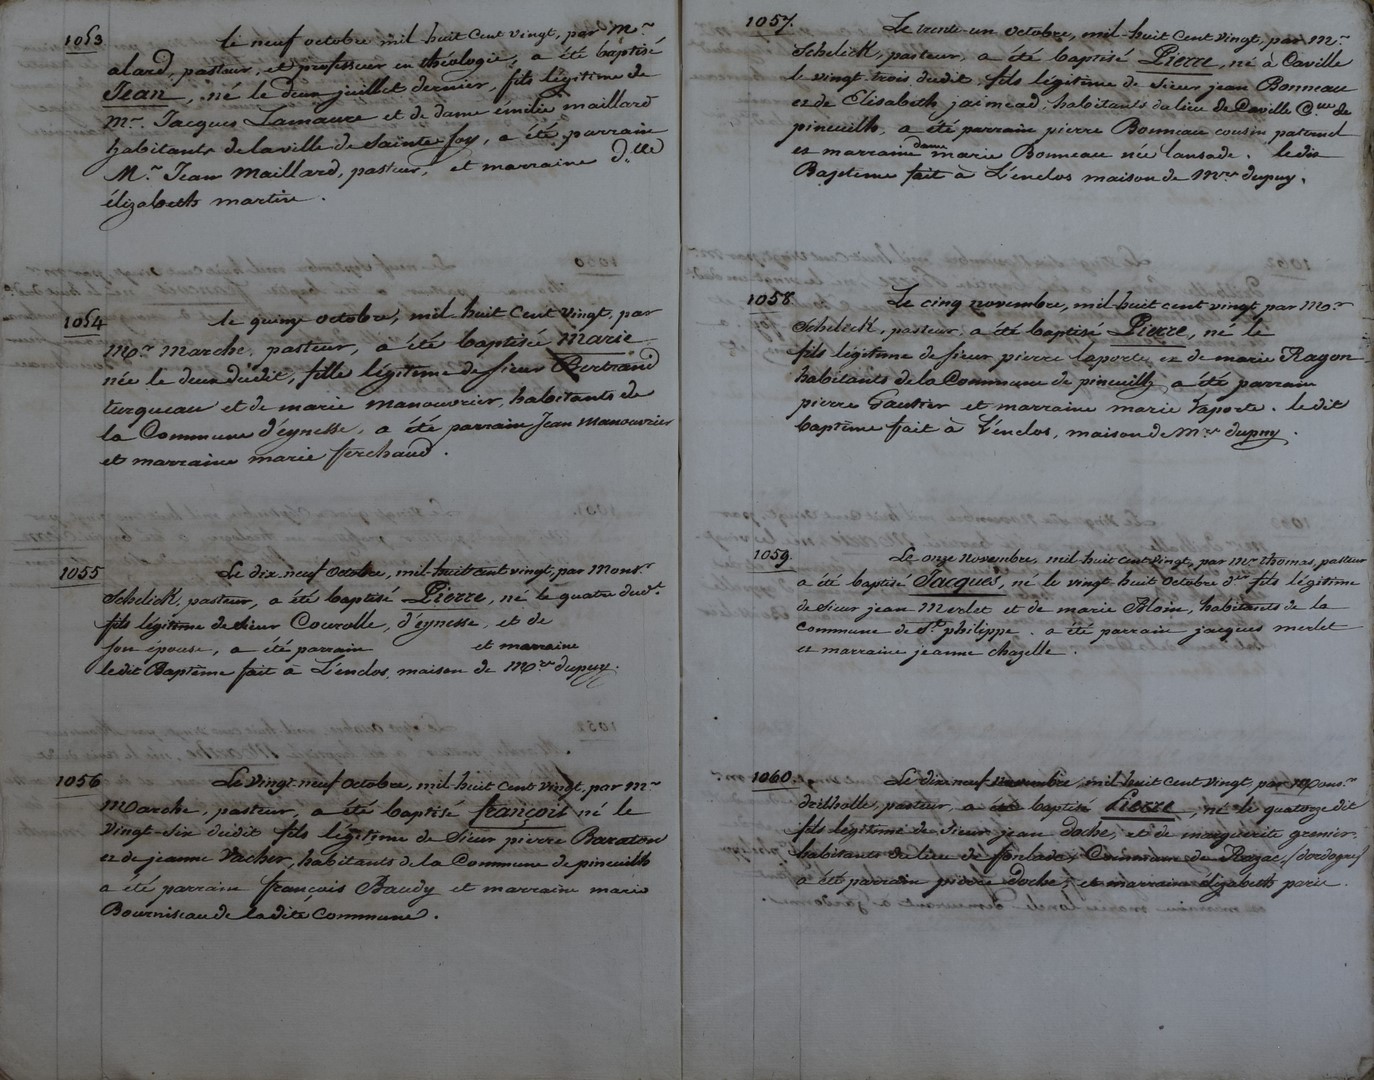 1053
le neuf octobre mil huit Cent vingt, par Mr
alard, pasteur, et professeur en théologie, a été baptisé
Jean, né le deux juillet dernier, fils légitime de
Mr. Jacques Lamaure et de dame émilie maillard
habitants de la ville de Sainte foy, a été parrain
Mr. Jean Maillard, pasteur, et marraine dlle
élizabeth martin.
1054
le quinze octobre, mil huit Cent vingt, par
Mr. Marche, pasteur, a été baptisée Marie
née le deux dudit, fille légitime de Sieur Bertrand
turqueau et de marie manouvrier, habitants de
la Commune d'eynesse, a été parrain Jean Manouvrier
et marraine marie ferchaud.
1055
Le dix neuf octobre, mil-huit cent vingt, par Monsr
Schelick, pasteur, a été baptisé Pierre, né le quatre dudt
fils légitime de Sieur Courolle, d'eynesse, et de
son épouse, a été parrain et marraine
ledit Baptême fait à L'enclos, maison de Mr dupuy.
1056
Le vingt neuf octobre, mil-huit Cent vingt, par Mr
Marche, pasteur, a été baptisé françois né le
vingt-six dudit fils légitime de Sieur pierre Baraton
et de jeanne Vacher, habitants de la Commune de pineuilh
a été parrain françois Baudy et marraine marie
Bourniseau de la dite Commune.
1057.
Le trente-un octobre, mil-huit Cent vingt, par Mr
Schelick, pasteur, a été baptisé Pierre, né à Caville
le vingt trois dudit, fils légitime de Sieur jean Bonneau
et de Elisabeth habitants du lieu de Caville Cue de
pineuilh, a été parrain pierre Bonneau cousin paternel
et marraine dame marie Bonneau née lansade. ledit
Baptême fait à L'enclos maison de Mr dupuy.
1058
Le cinq novembre, mil-huit cent vingt, par Mr
Schelick, pasteur, a été baptisé Pierre, né le
fils légitime de Sieur pierre laporte, et de marie Ragon
habitants de la Commune de pineuilh, a été parrain
pierre Gautier et marraine marie laporte. ledit
baptême fait à L'enclos, maison de Mr dupuy.
1059.
Le onze novembre, mil huit Cent vingt, par Mr thomas, pasteur
a été baptisé Jacques, né le vingt huit octobre der fils légitime
de Sieur jean Merlet et de marie Bloin, habitants de la
commune de St philippe. a été parrain jacques merlet
et marraine jeanne chazelle.
1060.
Le dix neuf novembre, mil-huit Cent vingt, par Monsr
pasteur, a été baptisé Pierre, né le quatorze dit
fils légitime de Sieur jean doche, et de marguerite grenier,
habitants du lieu de Commune de Razac, (dordogne)
a été parrain pierre doche, et marraine élizabeth paris.